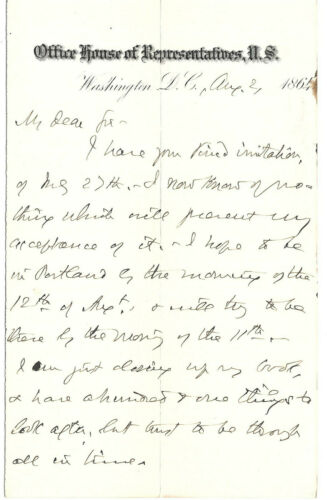 Office House of Representatives, U.S.
Washington D. C., Aug. 2, 186
My dear Sir -
I have your kind invitation,
of July 27th. - I now know of no-
thing which will prevent my
acceptance of it. - I hope to be
in Portland by the morning of the
12th of Augt., & will try to be
there by the morning of the 11th. -
I am just closing up my book,
& have a hundred & one things to
look after, but trust to be through
all in time.